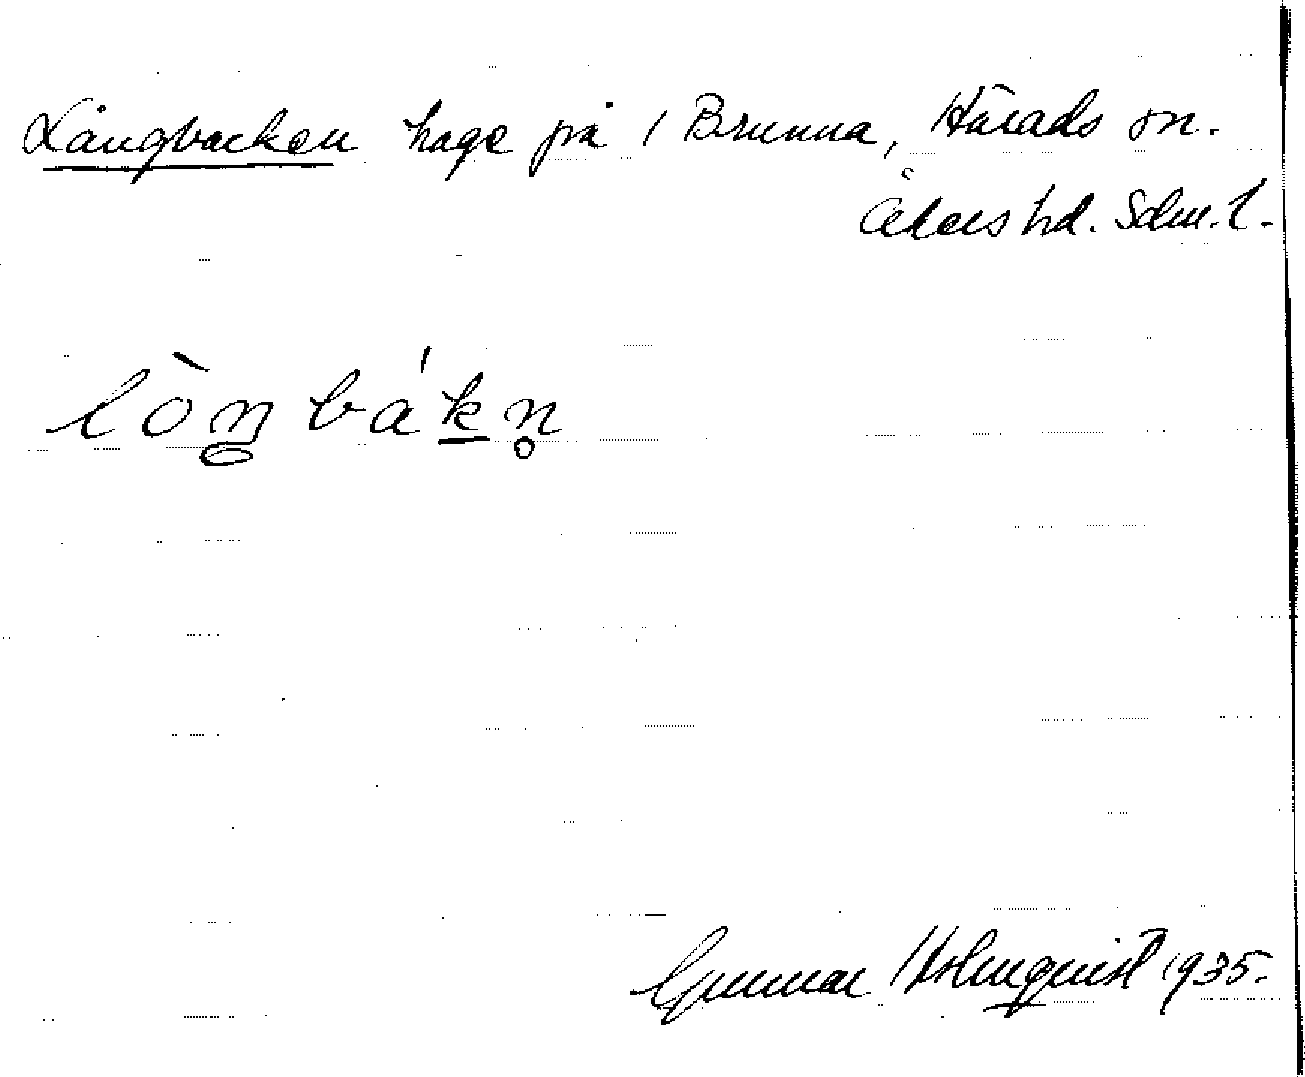 Långbacken hage på / Brunna, Härads sn.
Åkers hd. Sdm. l.
lò̀n bá'kn̥
Gunnar Holmquist 1935.